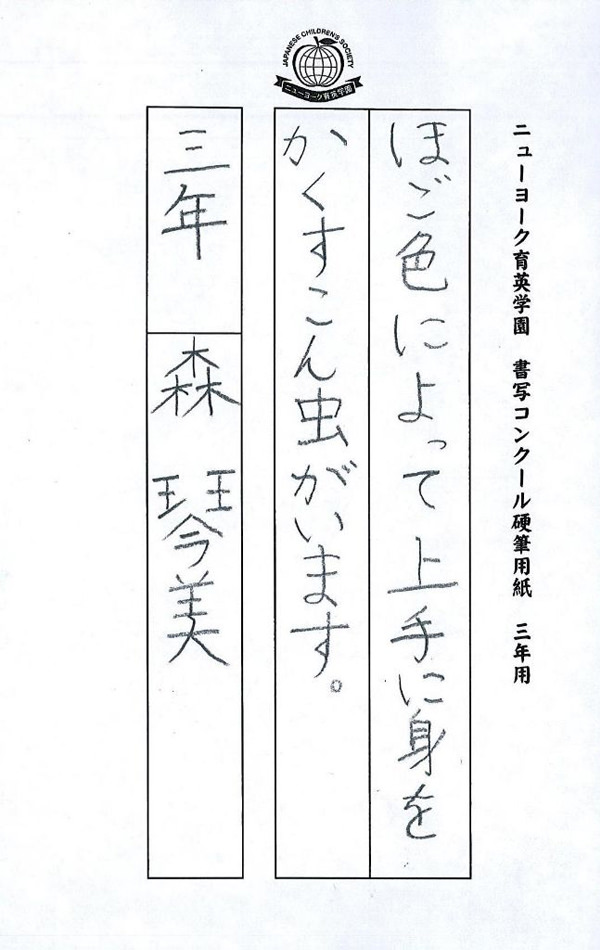 JAPANESE CHILDREN'S SOCIETY
ニューヨーク育英学園
ニューヨーク育英学園 書写コンクール硬筆用紙 三年用
ほご色によって上手に身を
かくすこん虫がいます。
三年 森 琴美